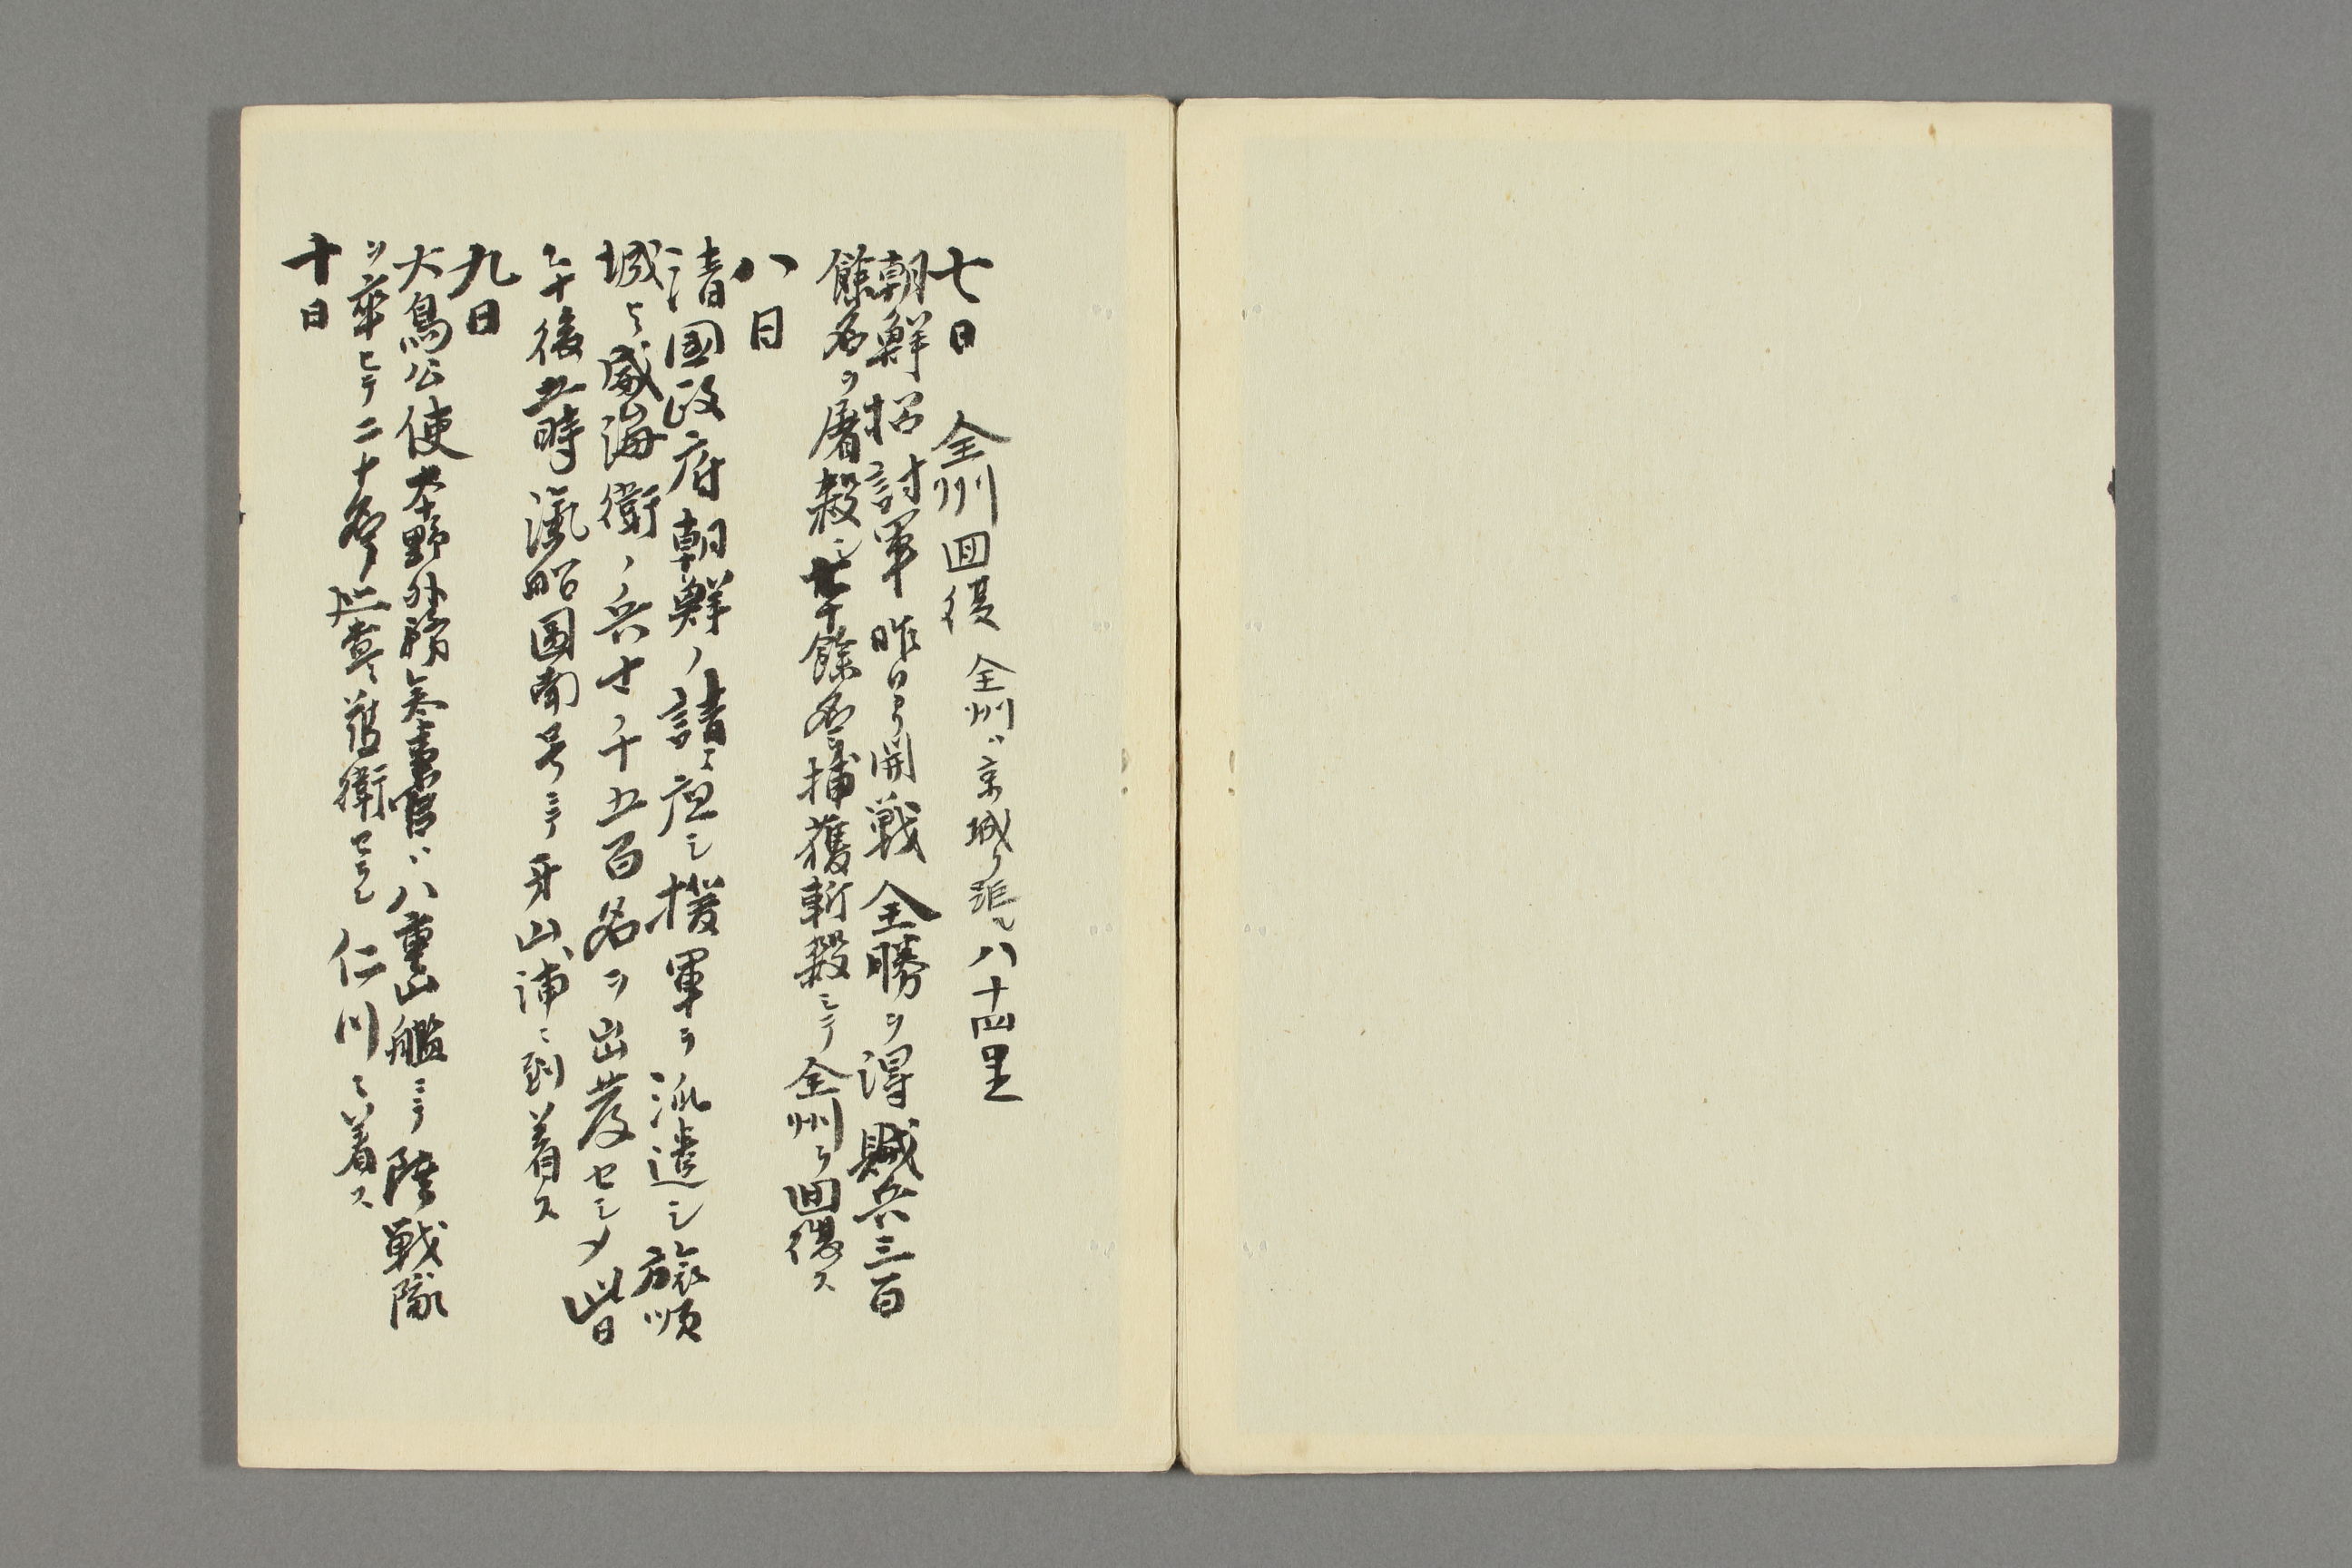 七日 全州回復 全州ハ京城ヲ距ル八十四里
朝鮮招討軍昨日ヨリ開戦全勝ヲ得賊兵三百
餘名ヲ屠殺シ十餘名捕獲斬殺シテ全州ヲ回復ス
八日
清國政府朝鮮ノ請ニ應シ援軍ヲ派遣シ旅順
城ト威海衛ノ兵千五百名ヲ出發セシメ此日
午後五時滊舩圖南号ニテ牙山浦ニ到着ス
九日
大鳥公使本野外務参事官ハ八重山艦ニテ陸戦隊
ヲ率ヒテ二十名巡査ニ護衛セラレ仁川ニ着ス
十日